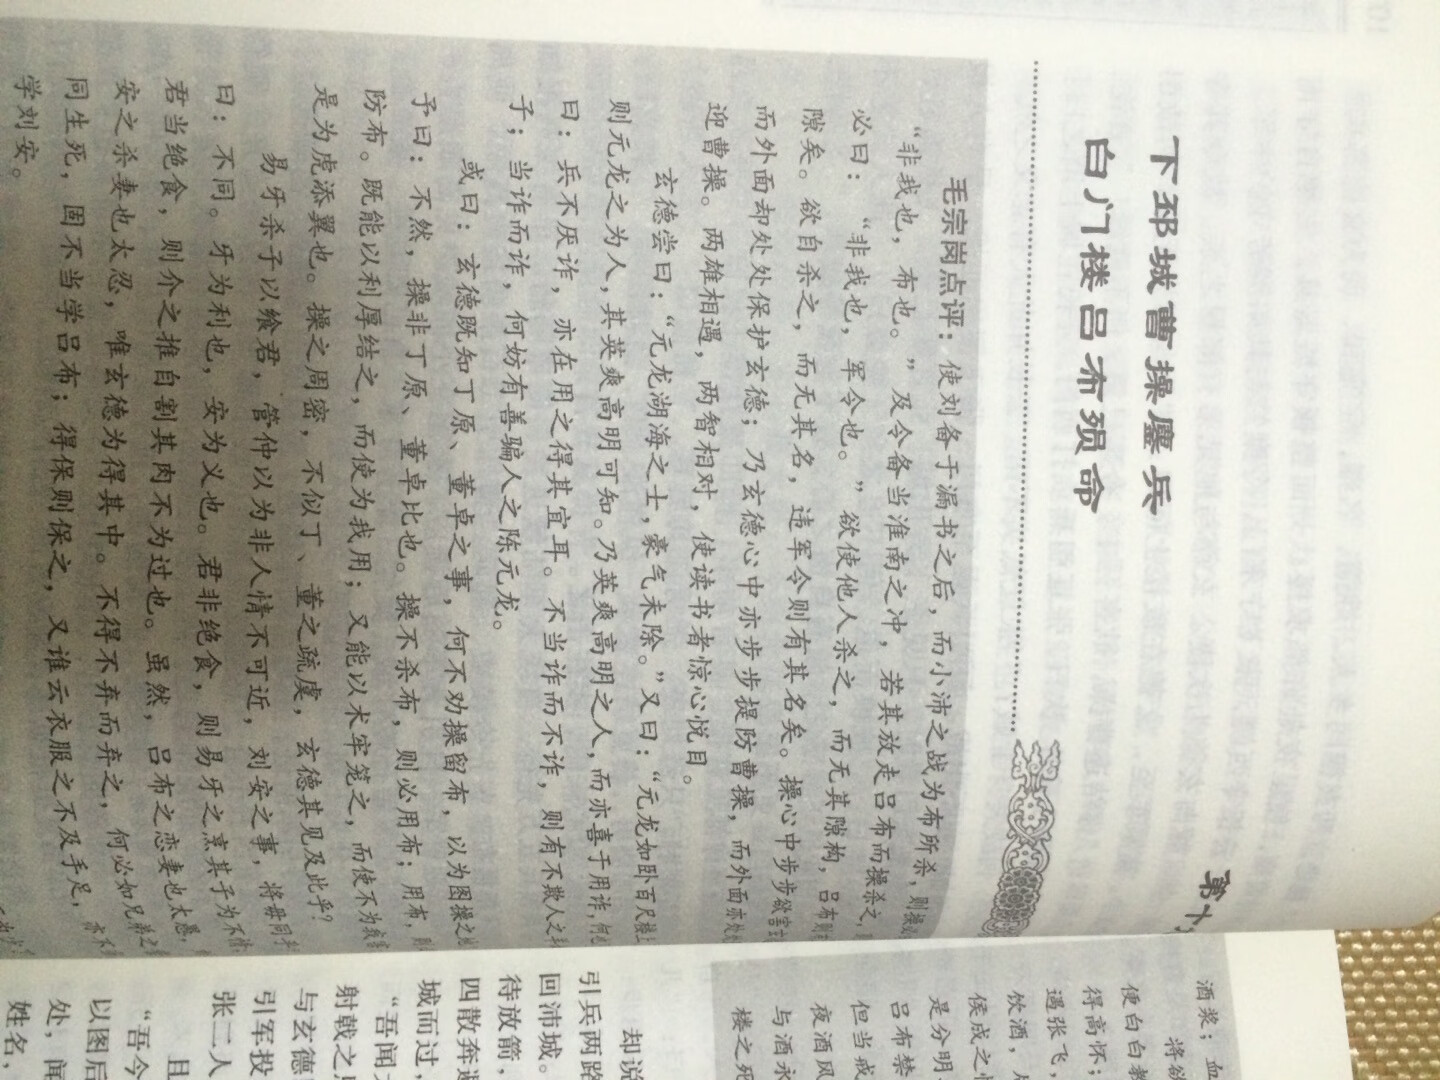 第十
下邳城曹操鏖兵
白门楼吕布殒命
毛宗岗点评：使刘备于漏书之后，而小沛之战为布所杀，则操必
“非我也，布也。”及令备当淮南之冲，若其放走吕布而操杀之，
必曰：“非我也，军令也。”欲使他人杀之，而无其隙构，吕布则有
隙矣。欲自杀之，而无其名，违军令则有其名矣。操心中步步欲害玄
而外面却处处保护玄德；乃玄德心中亦步步提防曹操，而外面亦处处
迎曹操。两雄相遇，两智相对，使读书者惊心悦目。
玄德尝曰：“元龙湖海之士，豪气未除。”又曰：“元龙如卧百尺楼上
则元龙之为人，其英爽高明可知。乃英爽高明之人，而亦喜于用诈，何也
曰：兵不厌诈，亦在用之得其宜耳。不当诈而不诈，则有不欺人之
子；当诈而诈，何妨有善骗人之陈元龙。
或曰：玄德既知丁原、董卓之事，何不劝操留布，以为图操之地
予曰：不然，操非丁原、董卓比也。操不杀布，则必用布；用布，则
防布。既能以利厚结之，而使为我用；又能以术牢笼之，而使不为我害
是为虎添翼也。操之周密，不似丁、董之疏虞，玄德其见及此乎？
易牙杀子以飨君，管仲以为非人情不可近，刘安之事，将毋同
曰：不同。牙为利也，安为义也。君非绝食，则易牙之烹其子为不
君当绝食，则介之推自割其肉不为过也。虽然，吕布之恋妻也太愚，
安之杀妻也太忍，唯玄德为得其中。不得不弃而弃之，何必如兄弟之
同生死，固不当学吕布；得保则保之，又谁云衣服之不及手足，亦不
学刘安。
酒浆；血
将欲
便白白教
得高怀；
遇张飞，
饮酒，
侯成之
是分明
吕布禁
但当戒
夜酒风
与酒永
楼之死
却说
引兵两路
回沛城。
待放箭，
四散奔逃
城而过，
“吾闻
射戟之
与玄德
引军投
张二人
且
“吾今
以图后
处，闻
姓名，